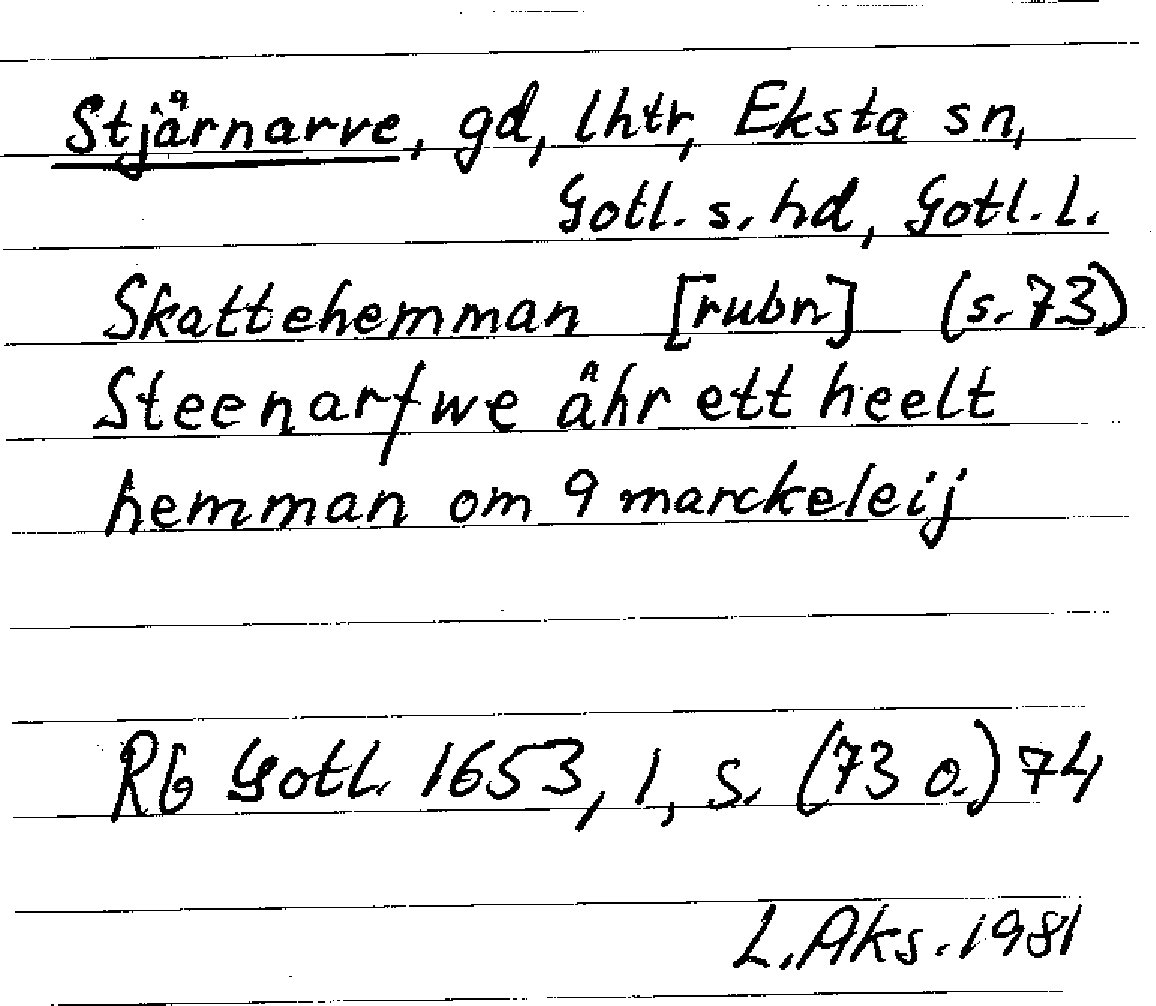 Stjärnarve, gd, lhtr, Eksta sn,
Gotl. s. hd, Gotl. l.
Skattehemman [rubr] (s. 73)
Steenarfwe ähr ett heelt
hemman om 9 marckeleij
Rb Gotl. 1653, 1, s. (73 o.) 74
L. Aks. 1981